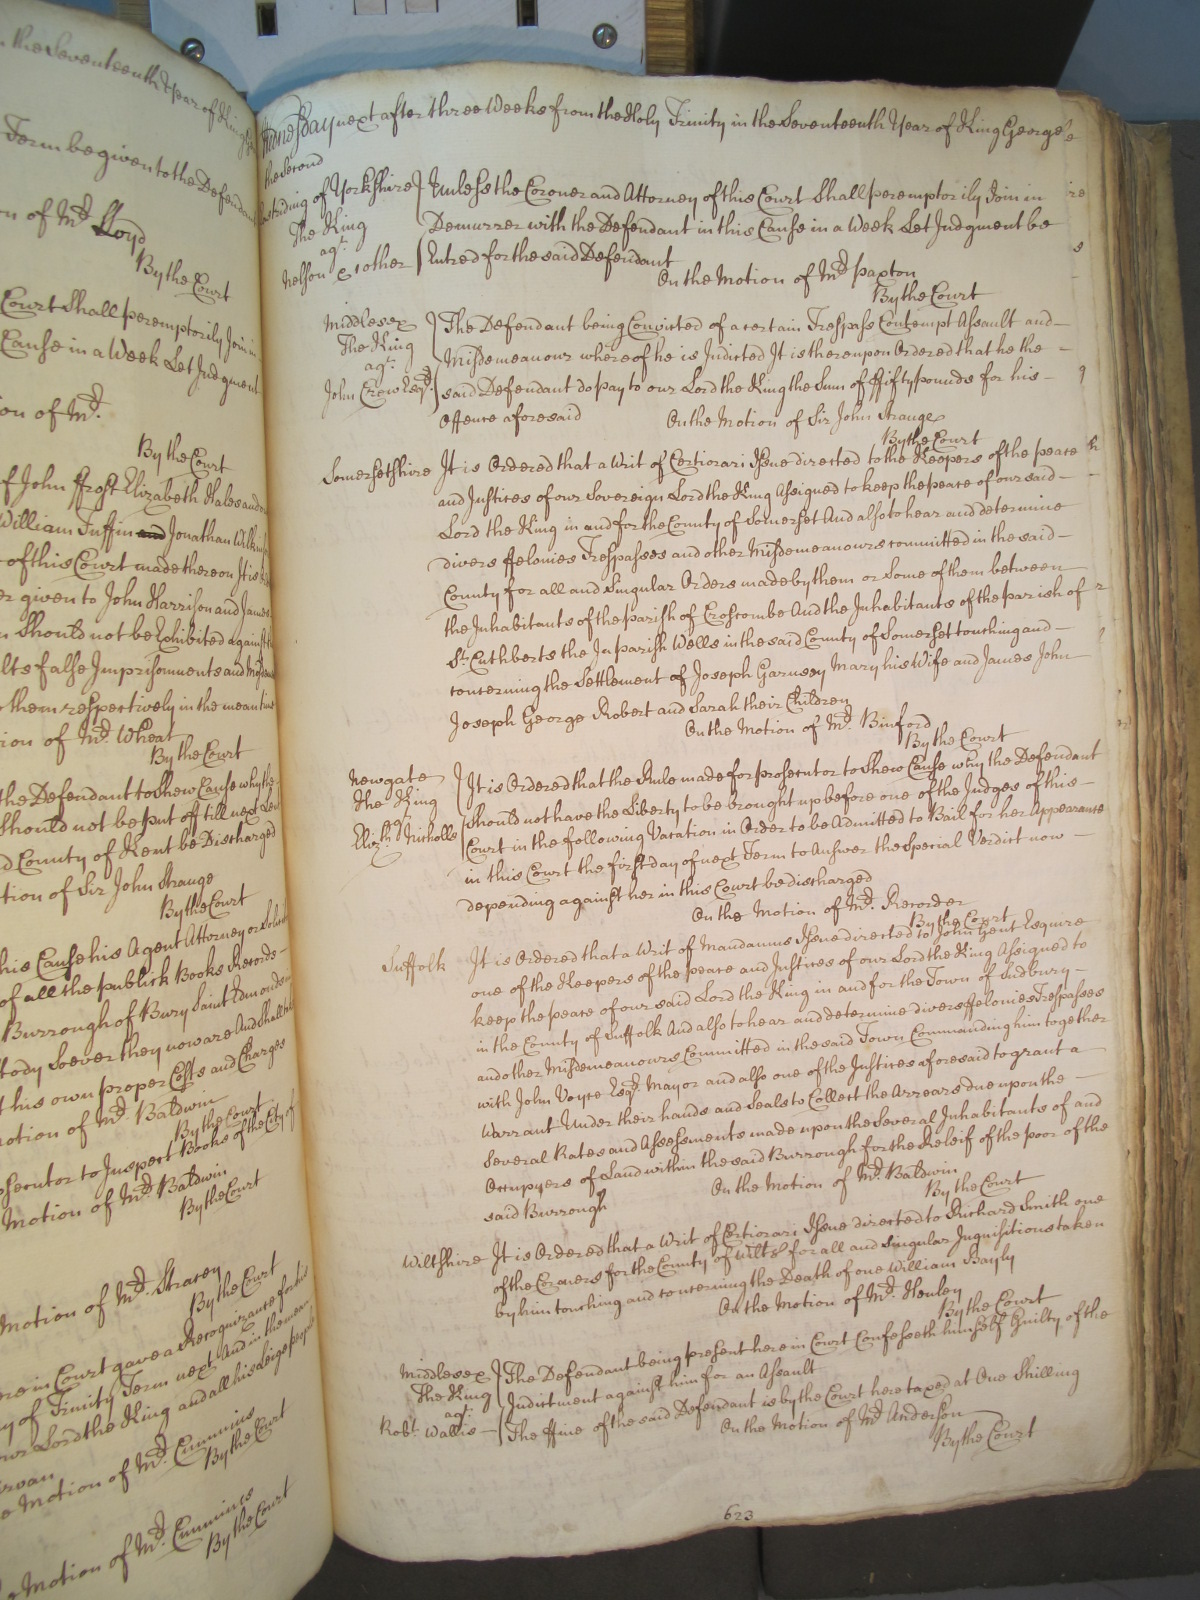 in the Seventeenth Year of King
Term be given to the Defendant
on of Mr. Lloyd
By the Court
Court Shall peremptorily Join in
Cause in a Week Let Judgment
ion of Mr.
By the Court
of John Ffrost Elizabeth Hales and
William Tuffin and Jonathan
of this Court made thereon It is
er given to John Harrison and James
Should not be Exhibited against
lts false Imprisonments and
them respectively in the mean time
ion of Mr. Wheat
By the Court
the Defendant to Shew Cause why the
should not be put off till next
nd County of Kent be Discharged
tion of Sir John Strange
By the Court
his Cause his Agent Attorney or
of all the publick Books Records
Burrough of Bury Saint Edmonds
tody soever they now are And Shall
t his own proper Costs and Charges
otion of Mr. Baldwin
By the Court
osecutor to Inspect Books of the City of
Motion of Mr. Baldwin
By the Court
Motion of Mr. Stracey
By the Court
ere in Court gave a Recognizance for his
y of Trinity Term next And in the mean
our Lord the King and all his Leige people
e Motion of Mr. Cummins
By the Court
Motion of Mr. Cummins
By the Court
Wednesday next after three Weeks from the Holy Trinity in the Seventeenth Year of King George
the Second
Eastriding of Yorkshire Unless the Coroner and Attorney of this Court Shall peremptorily Join in
The King agt. Demurrer with the Defendant in this Cause in a Week Let Judgment be
Nelson & 1 other Entred for the said Defendant
On the Motion of Mr. Paxton
By the Court
Middlesex The Defendant being Convicted of a certain Trespass Contempt Assault and
The King agt. Misdemeanour whereof he is Indicted It is thereupon Ordered that he the
John Crow Esqr. said Defendant do pay to our Lord the King the Sum of ffifty pounds for his
Offence aforesaid On the Motion of Sir John Strange
By the Court
Somersetshire It is Ordered that a Writ of Certiorari Issue directed to the Keepers of the peace
and Justices of our Sovereign Lord the King Assigned to keep the peace of our said
Lord the King in and for the County of Somerset And also to hear and determine
divers ffelonies Trespasses and other Misdemeanours committed in the said
County for all and Singular Orders made by them or Some of them between
the Inhabitants of the parish of Croscombe And the Inhabitants of the parish of
St. Cuthberts the In parish Wells in the said County of Somerset touching and
concerning the Settlement of Joseph Garnsey Mary his Wife and James John
Joseph George Robert and Sarah their Children
On the Motion of Mr. Binford
By the Court
Newgate It is Ordered that the Rule made for prosecutor to Shew Cause why the Defendant
The King should not have the Liberty to be brought up before one of the Judges of this
agt. Eliz:th Nicholls Court in the following Vacation in Order to be Admitted to Bail for her Appearance
in this Court the first day of next Term to Answer the Special Verdict now
depending against her in this Court be discharged
On the Motion of Mr. Recorder
By the Court
Suffolk It is Ordered that a Writ of Mandamus Issue directed to John Gent Esquire
one of the Keepers of the peace and Justices of our Lord the King Assigned to
keep the peace of our said Lord the King in and for the Town of Sudbury
in the County of Suffolk And also to hear and determine divers ffelonies Trespasses
and other Misdemeanours Committed in the said Town Commanding him together
with John Voyce Esqr. Mayor and also one of the Justices aforesaid to grant a
Warrant Under their hands and Seals to Collect the Arrears due upon the
Several Rates and Assessments made upon the Several Inhabitants of and
Occupyers of Land within the said Burrough for the Releif of the poor of the
said Burrough On the Motion of Mr. Baldwin
By the Court
Wiltshire It is Ordered that a Writ of Certiorari Issue directed to Richard Smith one
of the Coroners for the County of Wilts for all and Singular Inquisitions taken
by him touching and concerning the Death of one William Bayly
On the Motion of Mr. Henley
By the Court
Middlesex The Defendant being present here in Court Confesseth himself Guilty of the
The King agt. Indictment against him for an Assault
Robt. Wallis The ffine of the said Defendant is by the Court here taxed at One Shilling
On the Motion of Mr. Anderson
By the Court
623